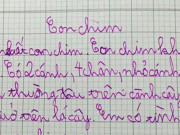 Con chim
biết con chim. Con chim kh
Có 2 cánh, 4 chân, nhỏ cánh
thường đậu trên cành cây
ở trên lá cây. Em